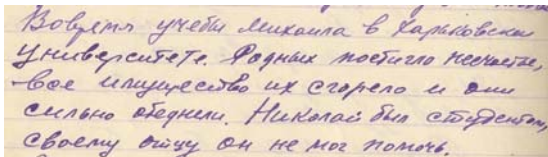 Вовремя учебы Михаила в Харьковском
университете. Родных постигло несчастье,
-вое имущество их сгорело и они
сильно обеднели. Николай был студентом,
своему отцу он не мог помочь.